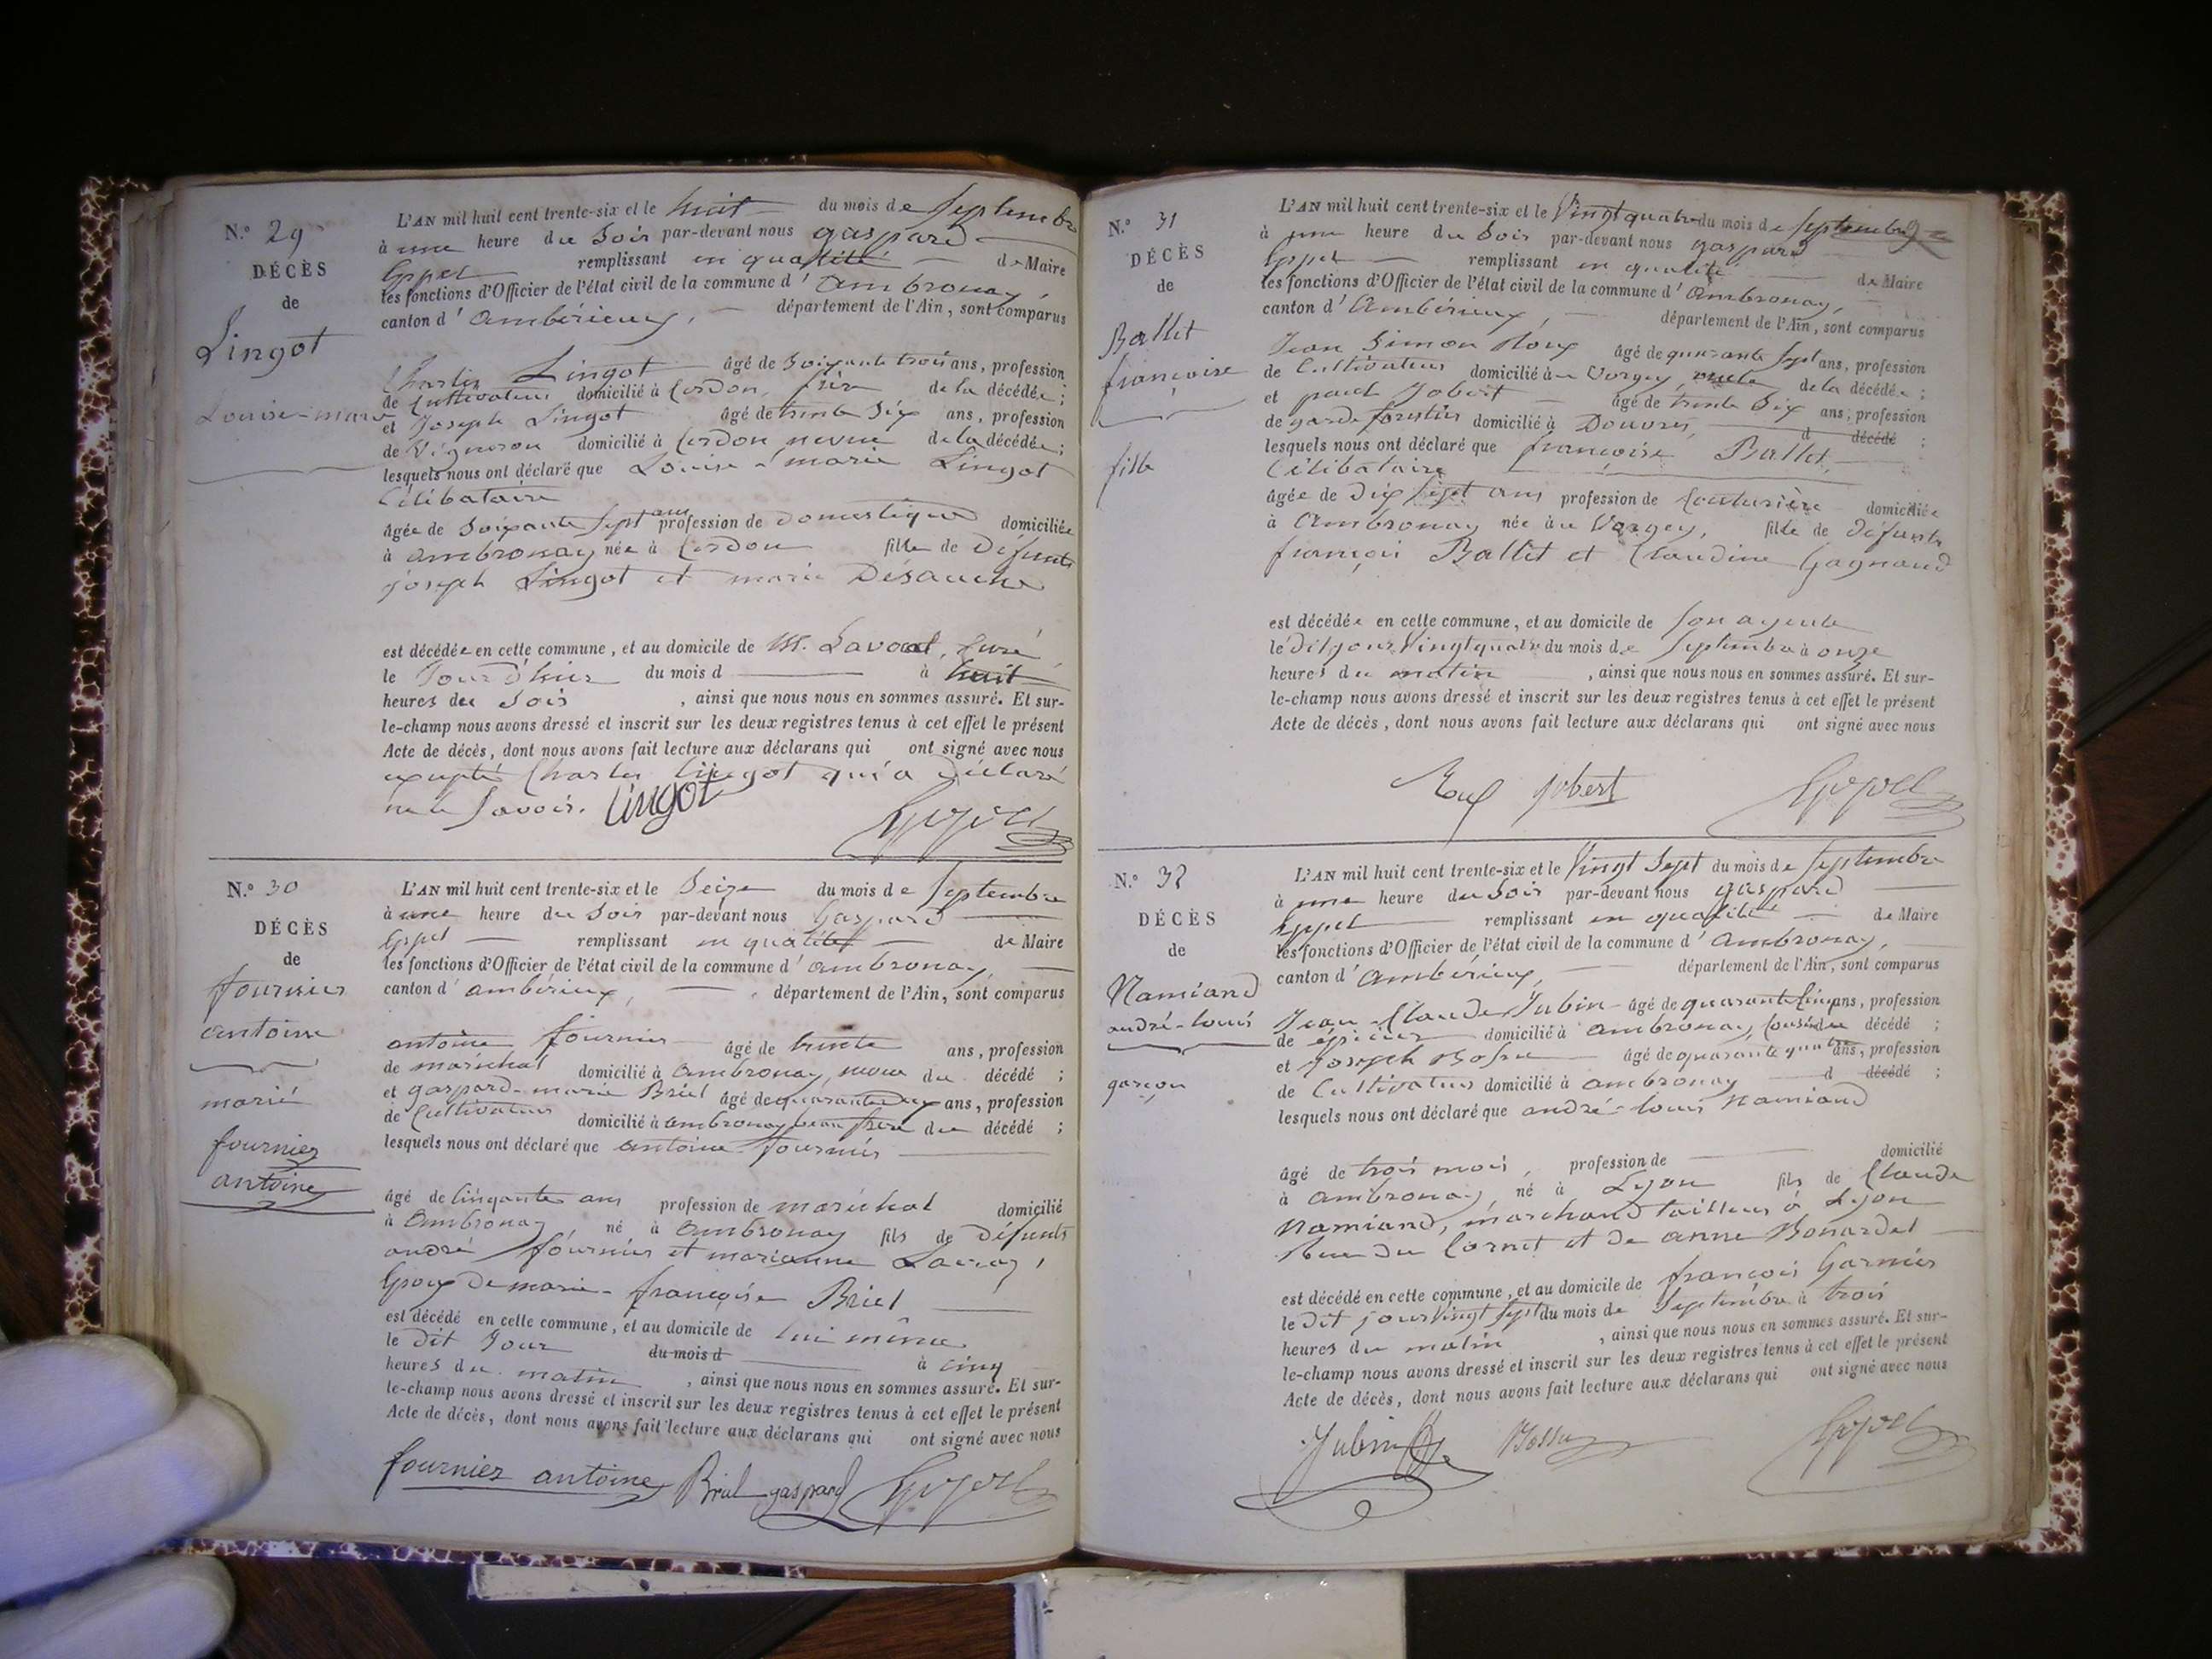 N.º 29
DÉCÈS
de
Lingot
Louise-marie
L'AN mil huit cent trente-six et le huit du mois de Septembre
à une heure du Soir par-devant nous gaspard
remplissant en qualité de Maire
les fonctions d'Officier de l'état civil de la commune d'ambronay,
canton d'ambérieux, département de l'Ain, sont comparus
Charles Lingot âgé de Soixante trois ans, profession
de Cultivateur domicilié à Cerdon, frère de la décédée ;
et Joseph Lingot âgé de trente Six ans, profession
de Vigneron domicilié à Cerdon neveu de la décédée ;
lesquels nous ont déclaré que Louise-marie Lingot
Célibataire
âgée de Soixante Sept ans profession de Domestique domiciliée
à ambronay née à Cerdon fille de Défunts
joseph Lingot et marie
est décédée en cette commune, et au domicile de M. Lavocat, Curé
le Jour d'hier du mois d à huit
heures du Soir, ainsi que nous nous en sommes assuré. Et sur-
le-champ nous avons dressé et inscrit sur les deux registres tenus à cet effet le présent
Acte de décès, dont nous avons fait lecture aux déclarans qui ont signé avec nous
excepté Charles lingot qui a déclaré
ne le Savoir. lingot
N.º 30
DÉCÈS
de
fournier
antoine
marié
fournier
antoine
L'AN mil huit cent trente-six et le Seize du mois de Septembre
à une heure du Soir par-devant nous Gaspard
remplissant en qualité de Maire
les fonctions d'Officier de l'état civil de la commune d'ambronay,
canton d'ambérieux, département de l'Ain, sont comparus
antoine fournier âgé de trente ans, profession
de maréchal domicilié à ambronay, neveu du décédé ;
et gaspard-marie Briel âgé de quarante deux ans, profession
de Cultivateur domicilié à ambronay beau frère du décédé ;
lesquels nous ont déclaré que antoine fournier
âgé de Cinquante ans profession de maréchal domicilié
à Ambronay, né à ambronay fils de Défunts
andré fournier et marianne
Epoux de marie-françoise Briel
est décédé en cette commune, et au domicile de lui même
le dit Jour du mois d à cinq
heures du matin, ainsi que nous nous en sommes assuré. Et sur-
le-champ nous avons dressé et inscrit sur les deux registres tenus à cet effet le présent
Acte de décès, dont nous avons fait lecture aux déclarans qui ont signé avec nous
fournier antoine Briel gaspard
N.º 31
DÉCÈS
de
Ballet
françoise
fille
L'AN mil huit cent trente-six et le Vingt quatre du mois de Septembre
à une heure du Soir par-devant nous gaspard
remplissant en qualité de Maire
les fonctions d'Officier de l'état civil de la commune d'Ambronay,
canton d'Ambérieux, département de l'Ain, sont comparus
Jean Simon Roux âgé de quarante Sept ans, profession
de Cultivateur domicilié au Vorgey, oncle de la décédée ;
et paul Jobert âgé de trente Six ans, profession
de garde forestier domicilié à Douvres, d décédé ;
lesquels nous ont déclaré que françoise Ballet,
Célibataire
âgée de Dix Sept ans profession de Couturière domiciliée
à Ambronay née au Vorgey, fille de Défunts
françois Ballet et Claudine Gagnaud
est décédée en cette commune, et au domicile de Son ayeule
le Dit jour Vingt quatre du mois de Septembre à onze
heures du matin, ainsi que nous nous en sommes assuré. Et sur-
le-champ nous avons dressé et inscrit sur les deux registres tenus à cet effet le présent
Acte de décès, dont nous avons fait lecture aux déclarans qui ont signé avec nous
Roux jobert
N.º 32
DÉCÈS
de
Namiand
andré-louis
garçon
L'AN mil huit cent trente-six et le Vingt Sept du mois de Septembre
à une heure du Soir par-devant nous gaspard
remplissant en qualité de Maire
les fonctions d'Officier de l'état civil de la commune d'ambronay,
canton d'ambérieux, département de l'Ain, sont comparus
Jean-Claude Jubin âgé de quarante Cinq ans, profession
de épicier domicilié à ambronay, Cousin du décédé ;
et Joseph Bossu âgé de quarante quatre ans, profession
de Cultivateur domicilié à ambronay d décédé ;
lesquels nous ont déclaré que andré-louis Namiand
âgé de trois mois, profession de domicilié
à ambronay, né à Lyon fils de Claude
Namiand, marchand tailleur à Lyon
Rue du Cornet et de anne Bonardel
est décédé en cette commune, et au domicile de françois Garnier
le Dit jour Vingt Sept du mois de Septembre à trois
heures du matin, ainsi que nous nous en sommes assuré. Et sur-
le-champ nous avons dressé et inscrit sur les deux registres tenus à cet effet le présent
Acte de décès, dont nous avons fait lecture aux déclarans qui ont signé avec nous
Jubin Bossu